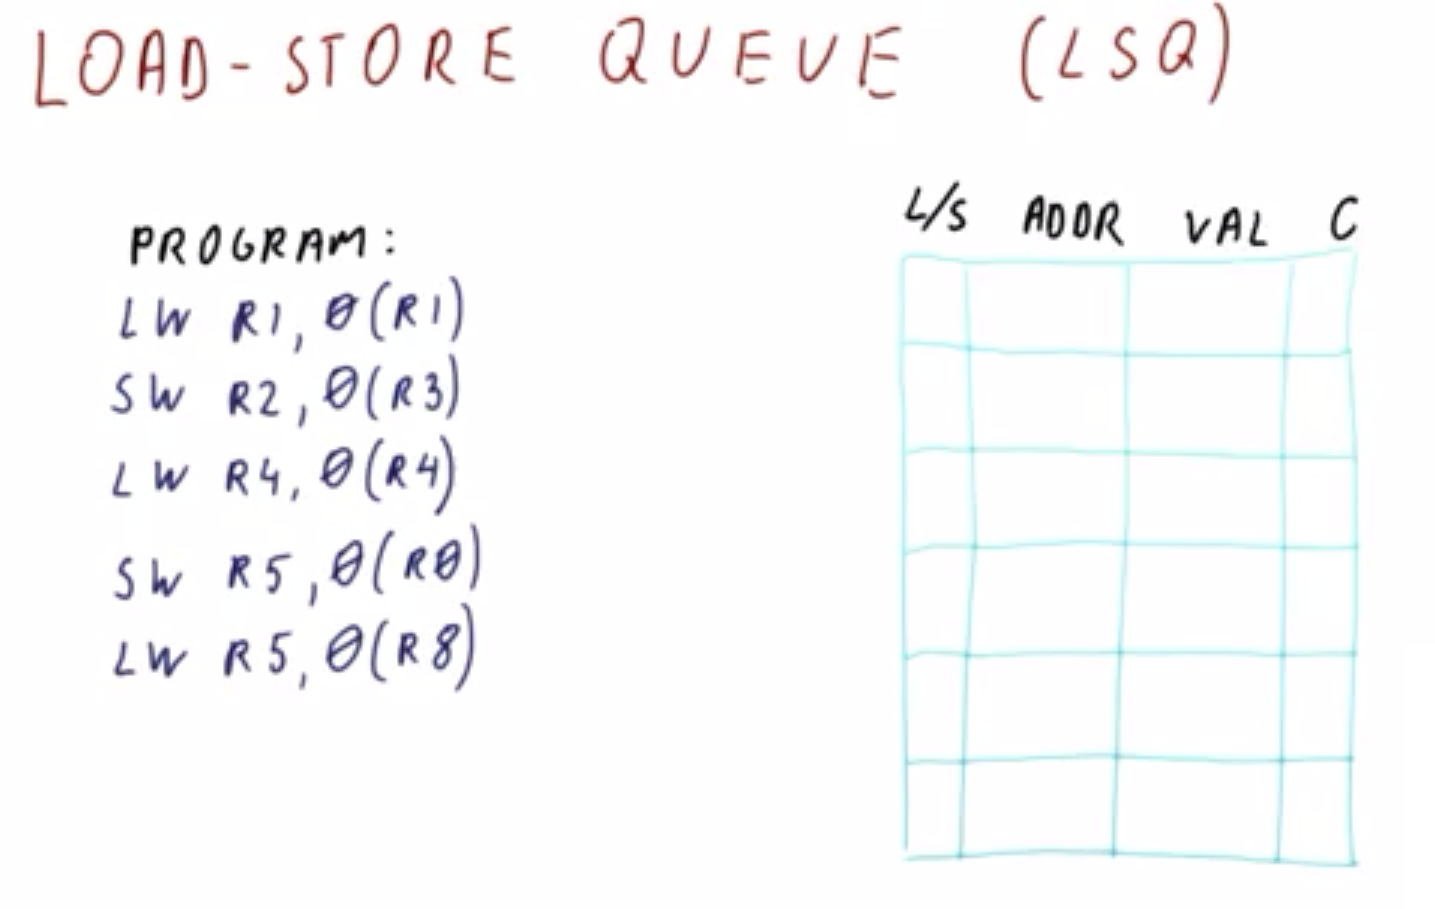 LOAD-STORE QUEUE (LSQ)
PROGRAM:
LW R1, 0(R1)
SW R2, 0(R3)
LW R4, 0(R4)
SW R5, 0(R0)
LW R5, 0(R8)
L/S ADDR VAL C